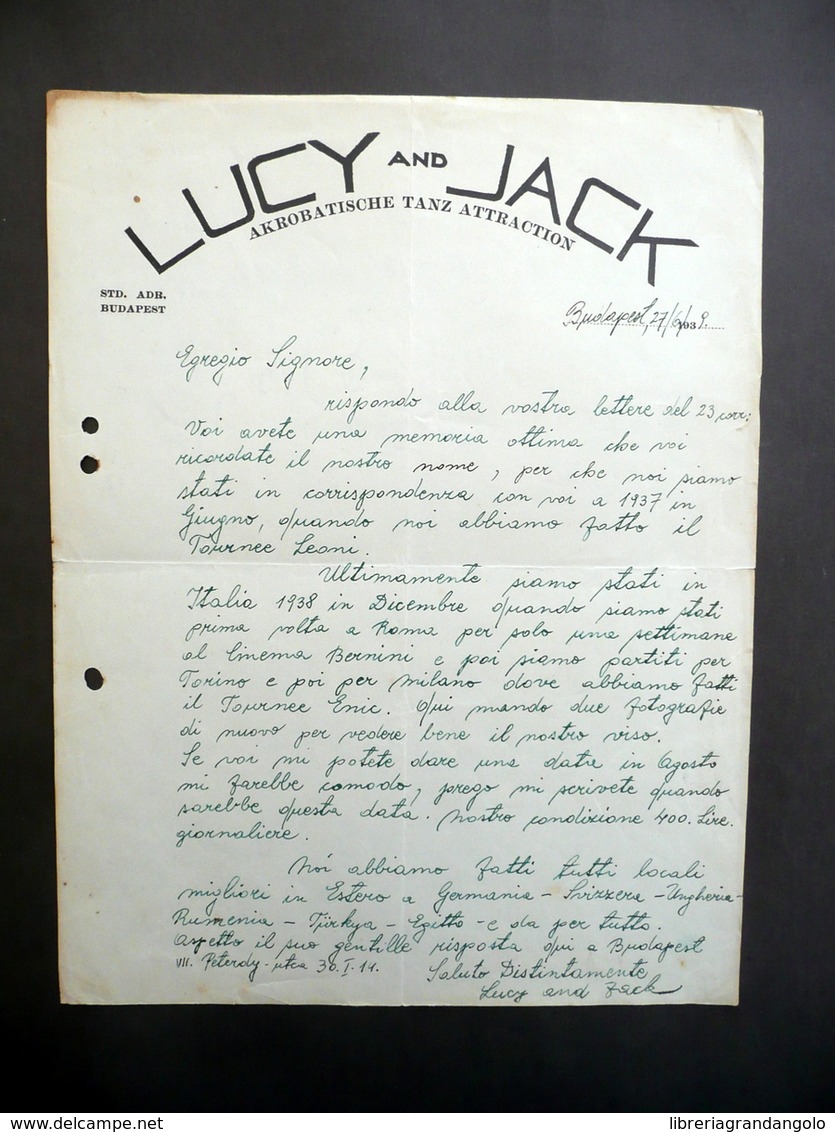 LUCY AND JACK
AKROBATISCHE TANZ ATTRACTION
STD. ADR.
BUDAPEST
Budapest, 27/6 1939.
Egregio Signore,
rispondo alla vostra lettere del 23 corr:
Voi avete una memoria ottima che voi
ricordate il nostro nome, per che noi siamo
stati in corrispondenza con voi a 1937 in
Giugno, quando noi abbiamo fatto il
Tournee Leoni.
Ultimamente siamo stati in
Italia 1938 in Dicembre quando siamo stati
prima volta a Roma per solo una settimana
al Cinema Bernini e poi siamo partiti per
Torino e poi per Milano dove abbiamo fatti
il Tournee Enic. Qui mando due fotografie
di nuovo per vedere bene il nostro viso.
Se voi mi potete dare una data in Agosto
mi farebbe comodo, prego mi scrivete quando
sarebbe questa data. Nostro condizione 400. Lire.
giornaliere.
Noi abbiamo fatti tutti locali
migliori in Estero a Germania - Svizzera - Ungheria -
Rumenia - Türkya - Egitto - e da per tutto.
Aspetto il suo gentille risposta qui a Budapest
VII. Peterdy-utca 30. I. 11. Saluto Distintamente
Lucy and Jack
www.delcampe.net
libreriagrandangolo